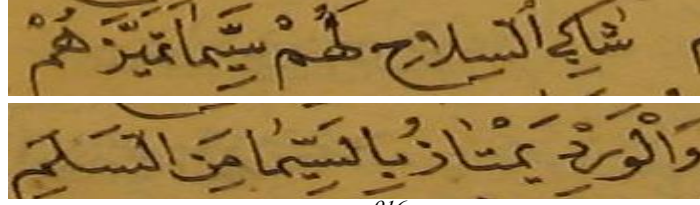 شَاكِي السِلَاحِ لَهُمْ سِيْمَا تَمَيَّزَهُمْ
وَالْوَرْدُ يَمْتَازُ بِالسِّيْمَا مِنَ السَلَمِ